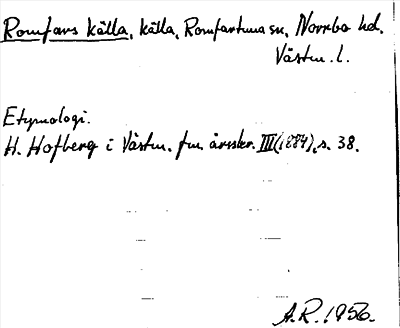 Romfars källa, källa, Romfartuna sn, Norrbo hd,
Västm. l.
Etymologi.
H. Hofberg i Västm. fm. årsskr. III (1884), s. 38.
A.R. 1956.